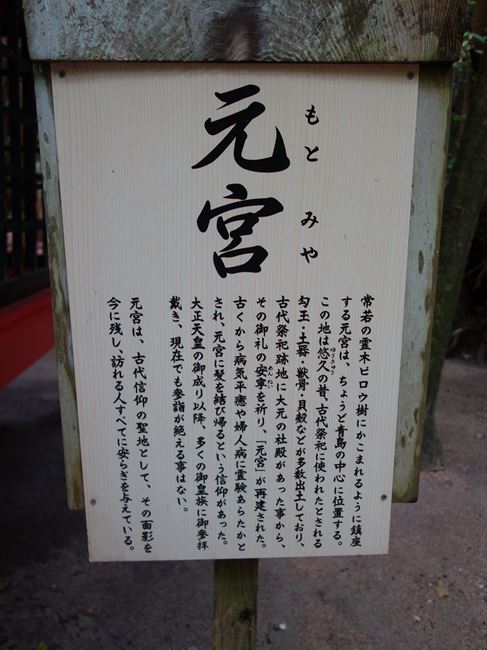 元宮
もと みや
常若の霊木ビロウ樹にかこまれるように鎮座
する元宮は、ちょうど青島の中心に位置する。
この地は悠久の昔、古代祭祀に使われたとされる
ゆうきゅう
勾玉・土器・獣骨・貝殻などが多数出土しており、
古代祭祀跡地に大元の社殿があった事から、
その御礼の安寧を祈り、「元宮」が再建された。
あんねい
古くから病気平癒や婦人病に霊験あらたかと
され、元宮に髪を結び帰るという信仰があった。
大正天皇の御成り以降、多くの御皇族に御参拝
戴き、現在でも参詣が絶える事はない。
元宮は、古代信仰の聖地として、その面影を
今に残し、訪れる人すべてに安らぎを与えている。